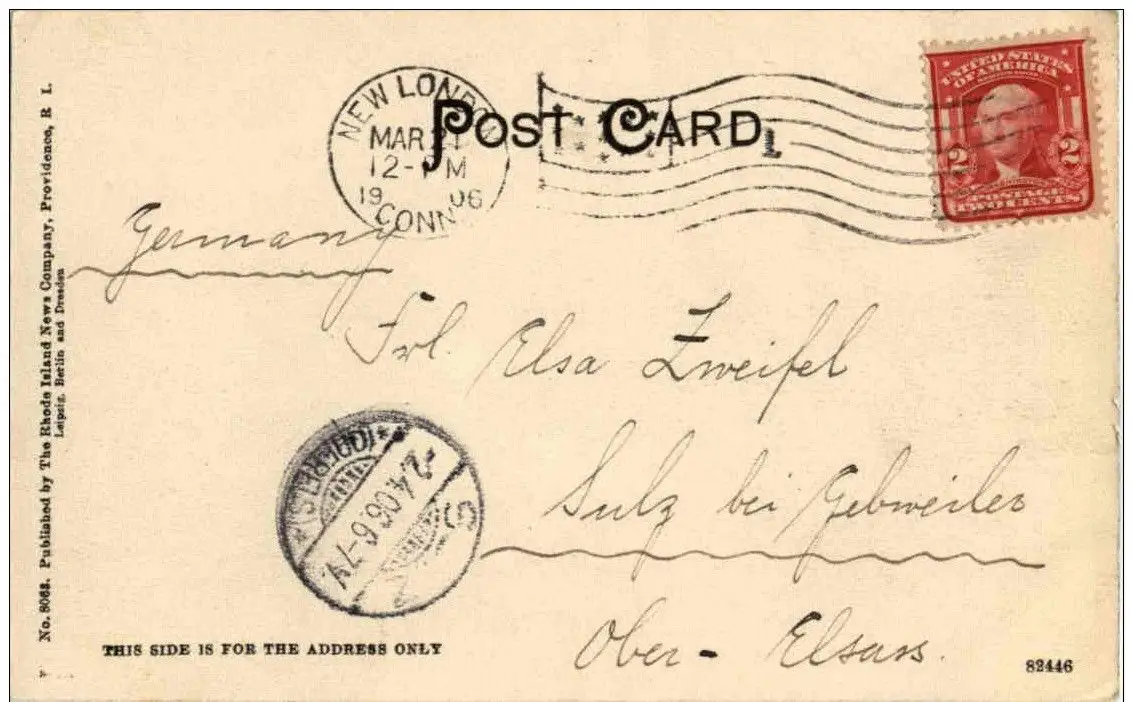 POST CARD
NEW LONDON
MAR 21
12- M
19 06
CONN
1
UNITED STATES
OF AMERICA
2 2
POSTAGE
TWO CENTS
Germany
Frl. Elsa Zweifel
Sulz bei Gebweiler
Ober-Elsass.
2.4.06.6-7
THIS SIDE IS FOR THE ADDRESS ONLY
82446
No. 8063. Published by The Rhode Island News Company, Providence, R I.
Leipzig, Berlin and Dresden